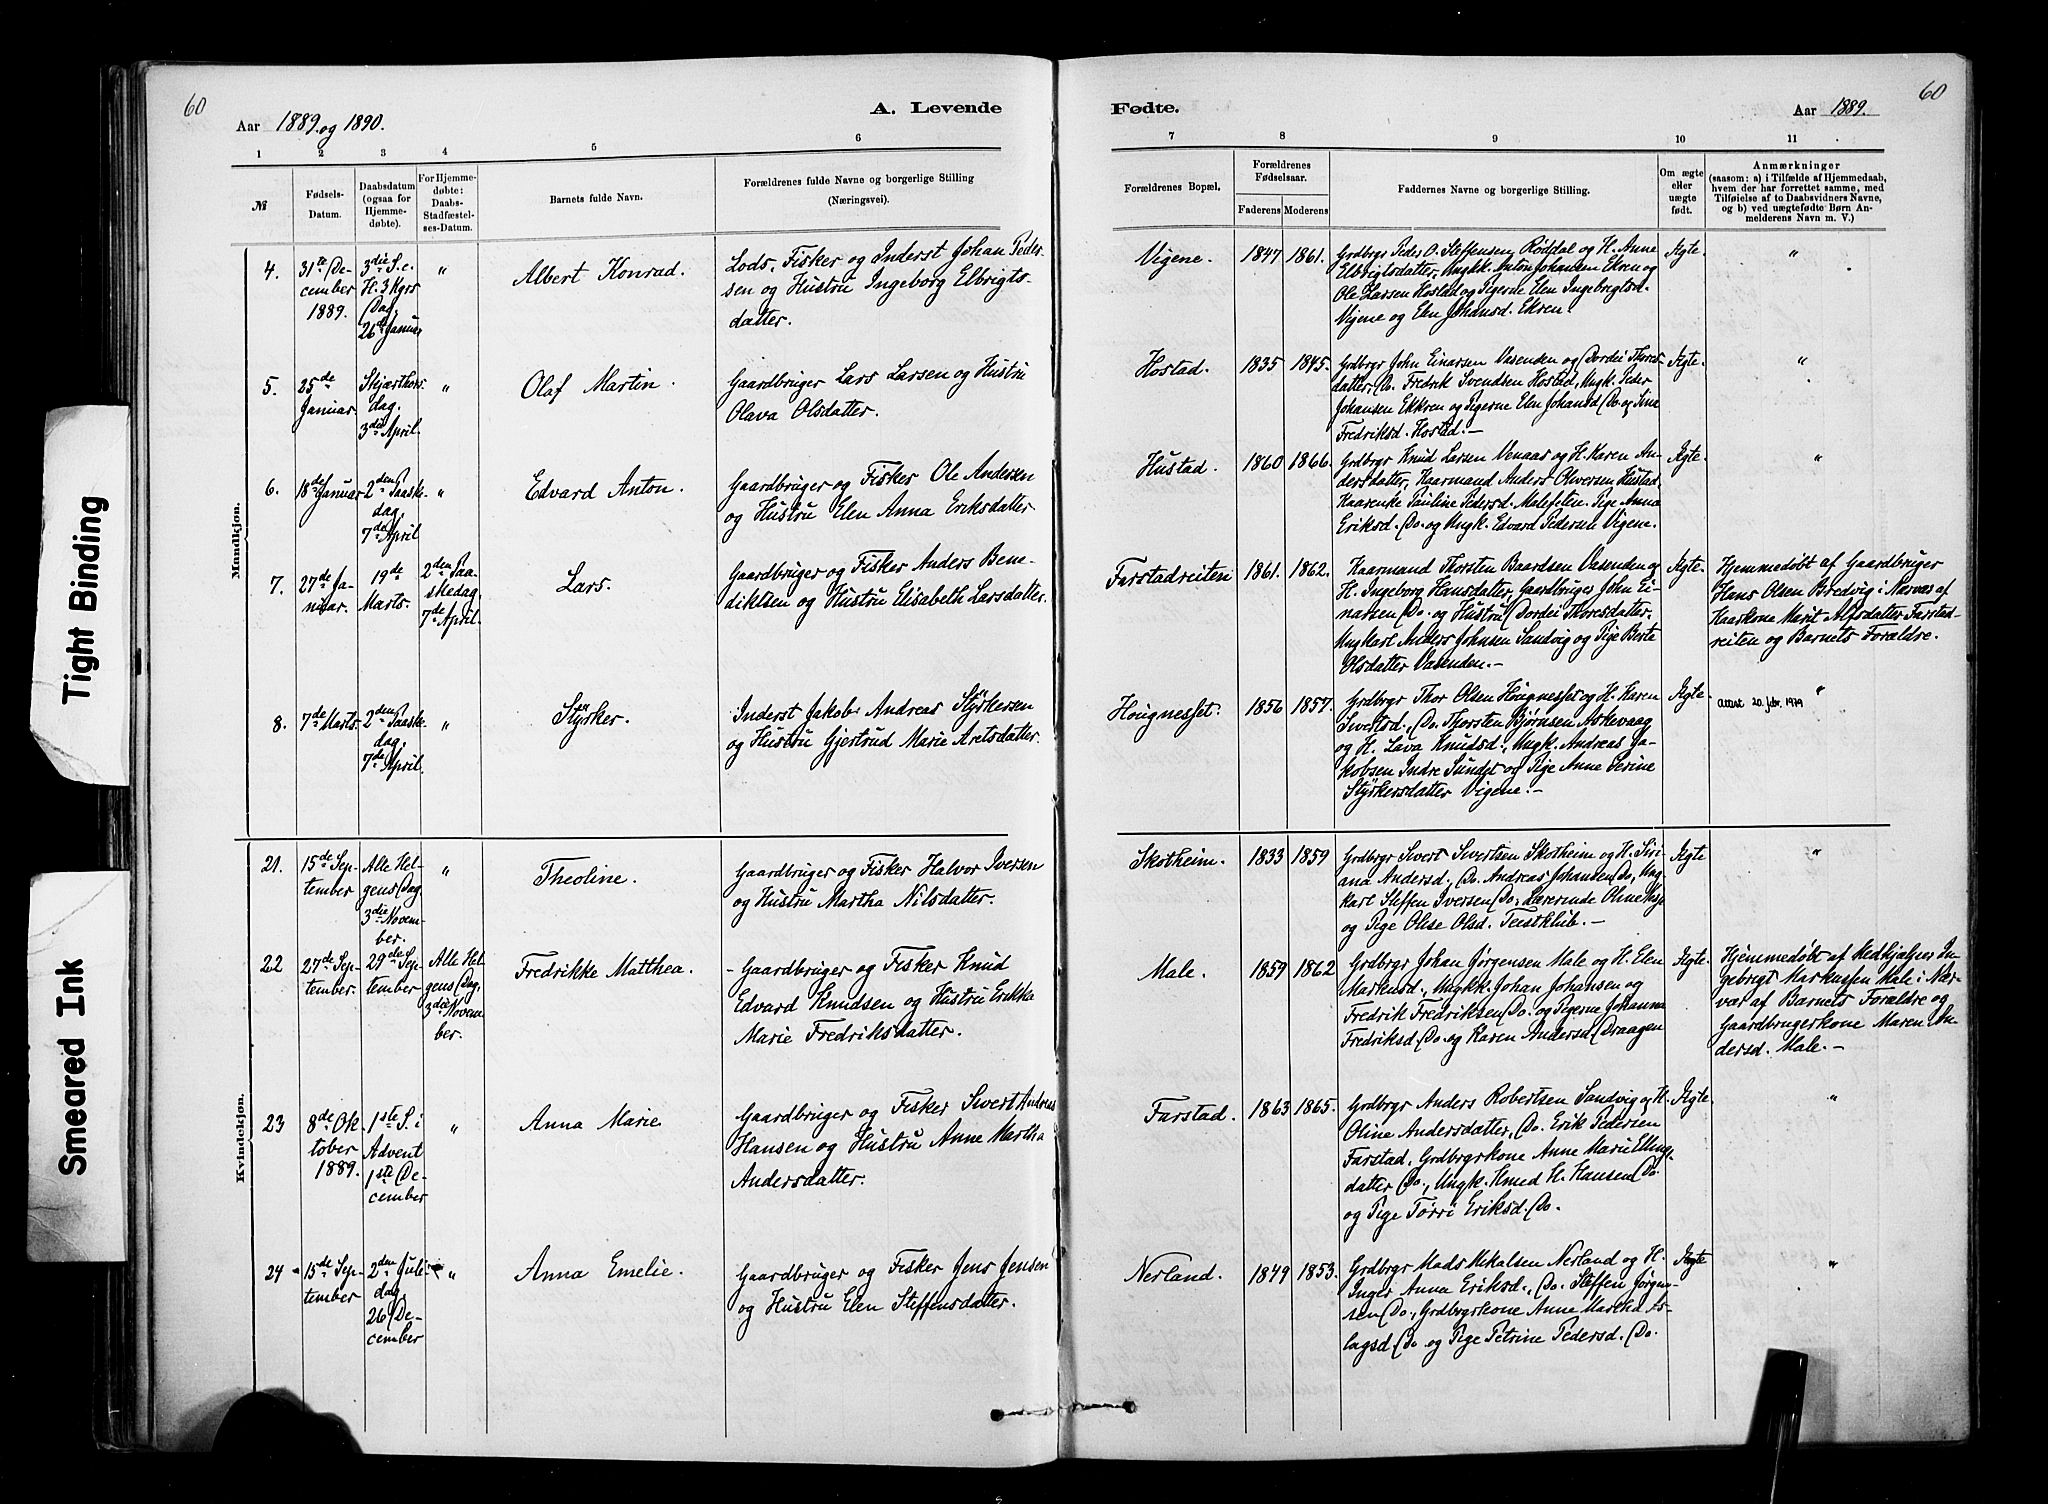 60
Aar 1889 og 1890.
A. Levende
1 2 3 4 5 6
№
Fødsels-
Datum.
Daabsdatum
(ogsaa for
Hjemme-
døbte).
For Hjemme-
døbte:
Daabs-
Stadfæstel-
ses-Datum.
Barnets fulde Navn.
Forældrenes fulde Navne og borgerlige Stilling
(Næringsvei).
Mandkjøn.
4.
31te De-
cember
1889.
3die S. e.
H. 3 Kgrs
Dag,
26de Januar
"
Albert Konrad.
Lods, Fisker og Inderst Johan Peder-
sen og Hustru Ingeborg Elbrigts-
datter.
5.
25de
Januar
Skjærthors-
dag.
3die April.
"
Olaf Martin.
Gaardbruger Lars Larsen og Hustru
Olava Olsdatter.
6.
18de Januar
2den Paaske-
dag,
7de April
"
Edvard Anton.
Gaardbruger og Fisker Ole Andersen
og Hustru Elen Anna Eriksdatter.
7.
27de Ja-
nuar.
19de
Marts.
2den Paa-
skedag,
7de April.
Lars.
Gaardbruger og Fisker Anders Bene-
diktsen og Hustru Elisabeth Larsdatter.
8.
7de Marts.
2den Paaske-
dag,
7de April.
"
Styrker.
Inderst Jakob Andreas Styrkersen
og Hustru Gjertrud Marie Aretsdatter.
Kvindekjøn.
21.
15de Sep-
tember
Alle Hel-
gens Dag
3die Novem-
ber.
"
Theoline.
Gaardbruger og Fisker Halvor Iversen
og Hustru Martha Nilsdatter.
22
27de Sep-
tember.
29de Sep-
tember
Alle Hel-
gens Dag,
3die Novem-
ber.
Fredrikke Matthea.
- Gaardbruger og Fisker Knud
Edvard Knudsen og Hustru Erikka
Marie Fredriksdatter.
23
8de Ok-
tober
1889.
1ste S. i
Advent
1ste De-
cember
"
Anna Marie.
Gaardbruger og Fisker Sivert Andreas
Hansen og Hustru Anne Martha
Andersdatter.
24
15de Sep-
tember
2den Jule-
dag,
26 De-
cember
"
Anna Emelie.
Gaardbruger og Fisker Jens Jensen
og Hustru Elen Steffensdatter.
60
Fødte.
Aar 1889.
7 8 9 10 11
Forældrenes Bopæl.
Forældrenes
Fødselsaar.
Faderens Moderens
Faddernes Navne og borgerlige Stilling.
Om ægte
eller
uægte
født.
Anmærkninger
(saasom: a) i Tilfælde af Hjemmedaab,
hvem der har forrettet samme, med
Tilføielse af to Daabsvidners Navne,
og b) ved uægtefødte Børn An-
melderens Navn m. V.)
Vigene. 1847 1861.
Grdbrgr Peder O. Steffensen, Røddal og H. Anne
Elbrigtsdatter, Ungk. Anton Johansen Ekren og
Ole Larsen Hostad og Pigerne Elen Ingebrigtsd.
Vigene og Elen Johansd. Ekren.
Ægte. "
Hostad. 1835 1845.
Grdbrgr John Einarsen Vasenden og Dordei Thores-
datter, Do. Fredrik Svendsen Hostad, Ungk. Peder
Johansen Ekkren og Pigerne Elen Johansd. Do. og Sine
Fredriksd. Hostad. –
Ægte. "
Hustad. 1860 1866.
Grdbrgr Knud Larsen Venaas og H. Karen An-
dersdatter, Kaarmand Anders Oliversen Hustad,
Kaarenke Pauline Pedersd. Malefeten. Pige Anna
Eriksd. Do. og Ungk. Edvard Pedersen Vigene.
Ægte. "
Farstadreiten 1861. 1862.
Kaarmand Thorsten Baardsen Vasenden og
H. Ingeborg Hansdatter, Gaardbruger John Ei-
narsen Do. og Hustru Dordei Thoresdatter,
Ungkarl Anders Johnsen Sandvig og Pige Berte
Olsdatter Vasenden. –
Ægte.
Hjemmedøbt af Gaardbruger
Hans Olsen Bredvig i Nærvær af
Kaarkone Marit Alfsdatter Farstad-
reiten og Barnets Forældre.
Hougnesset. 1856 1857.
Grdbrgr Thor Olsen Hougnesset og H. Karen
Sivertsd., Do. Thorsten Bjørnsen Askevaag
og H. Lava Knudsd., Ungk. Andreas Ja-
kobsen Indre Sundet og Pige Anne Serine
Styrkersdatter Vigene. –
Ægte. "
Attest 20. febr. 1979
Skotheim. 1833 1859
Grdbrgr Sivert Sivertsen Skotheim og H. Siri-
ana Andersd., Do. Andreas Johansen Do., Ung-
karl Steffen Iversen Do., Lærerinde Oline
og Pige Olise Olsd. Teistklub. –
Ægte "
Male. 1859 1862
Grdbrgr Johan Jørgensen Male og H. Elen
Markusd., Ungkk. Johan Johansen og
Fredrik Fredriksen Do. og Pigerne Johanna
Fredriksd. Do. og Karen Andersd. Draagen
Ægte.
Hjemmedøbt af Medhjælper In-
gebrigt Markussen Male i Nær-
vær af Barnets Forældre og
Gaardbrugerkone Maren An-
dersd. Male. –
Farstad. 1863 1865.
Grdbrgr Anders Robertsen Sandvig og H.
Oline Andersdatter, Do. Erik Pedersen
Farstad, Grdbrgrkone Anne Marie Elling-
datter Do., Ungk. Knud H. Hansen Do.
og Pige Tørri Eriksd. Do.
Ægte. "
Nerland. 1849 1853.
Grdbrgr Mads Mikalsen Nerland og H.
Inger Anna Eriksd., Do. Steffen Jørgen-
sen Do., Grdbrgrkone Anne Martha As-
lagsd. Do. og Pige Petrine Pedersd. Do.
Ægte "
Tight Binding
Smeared Ink